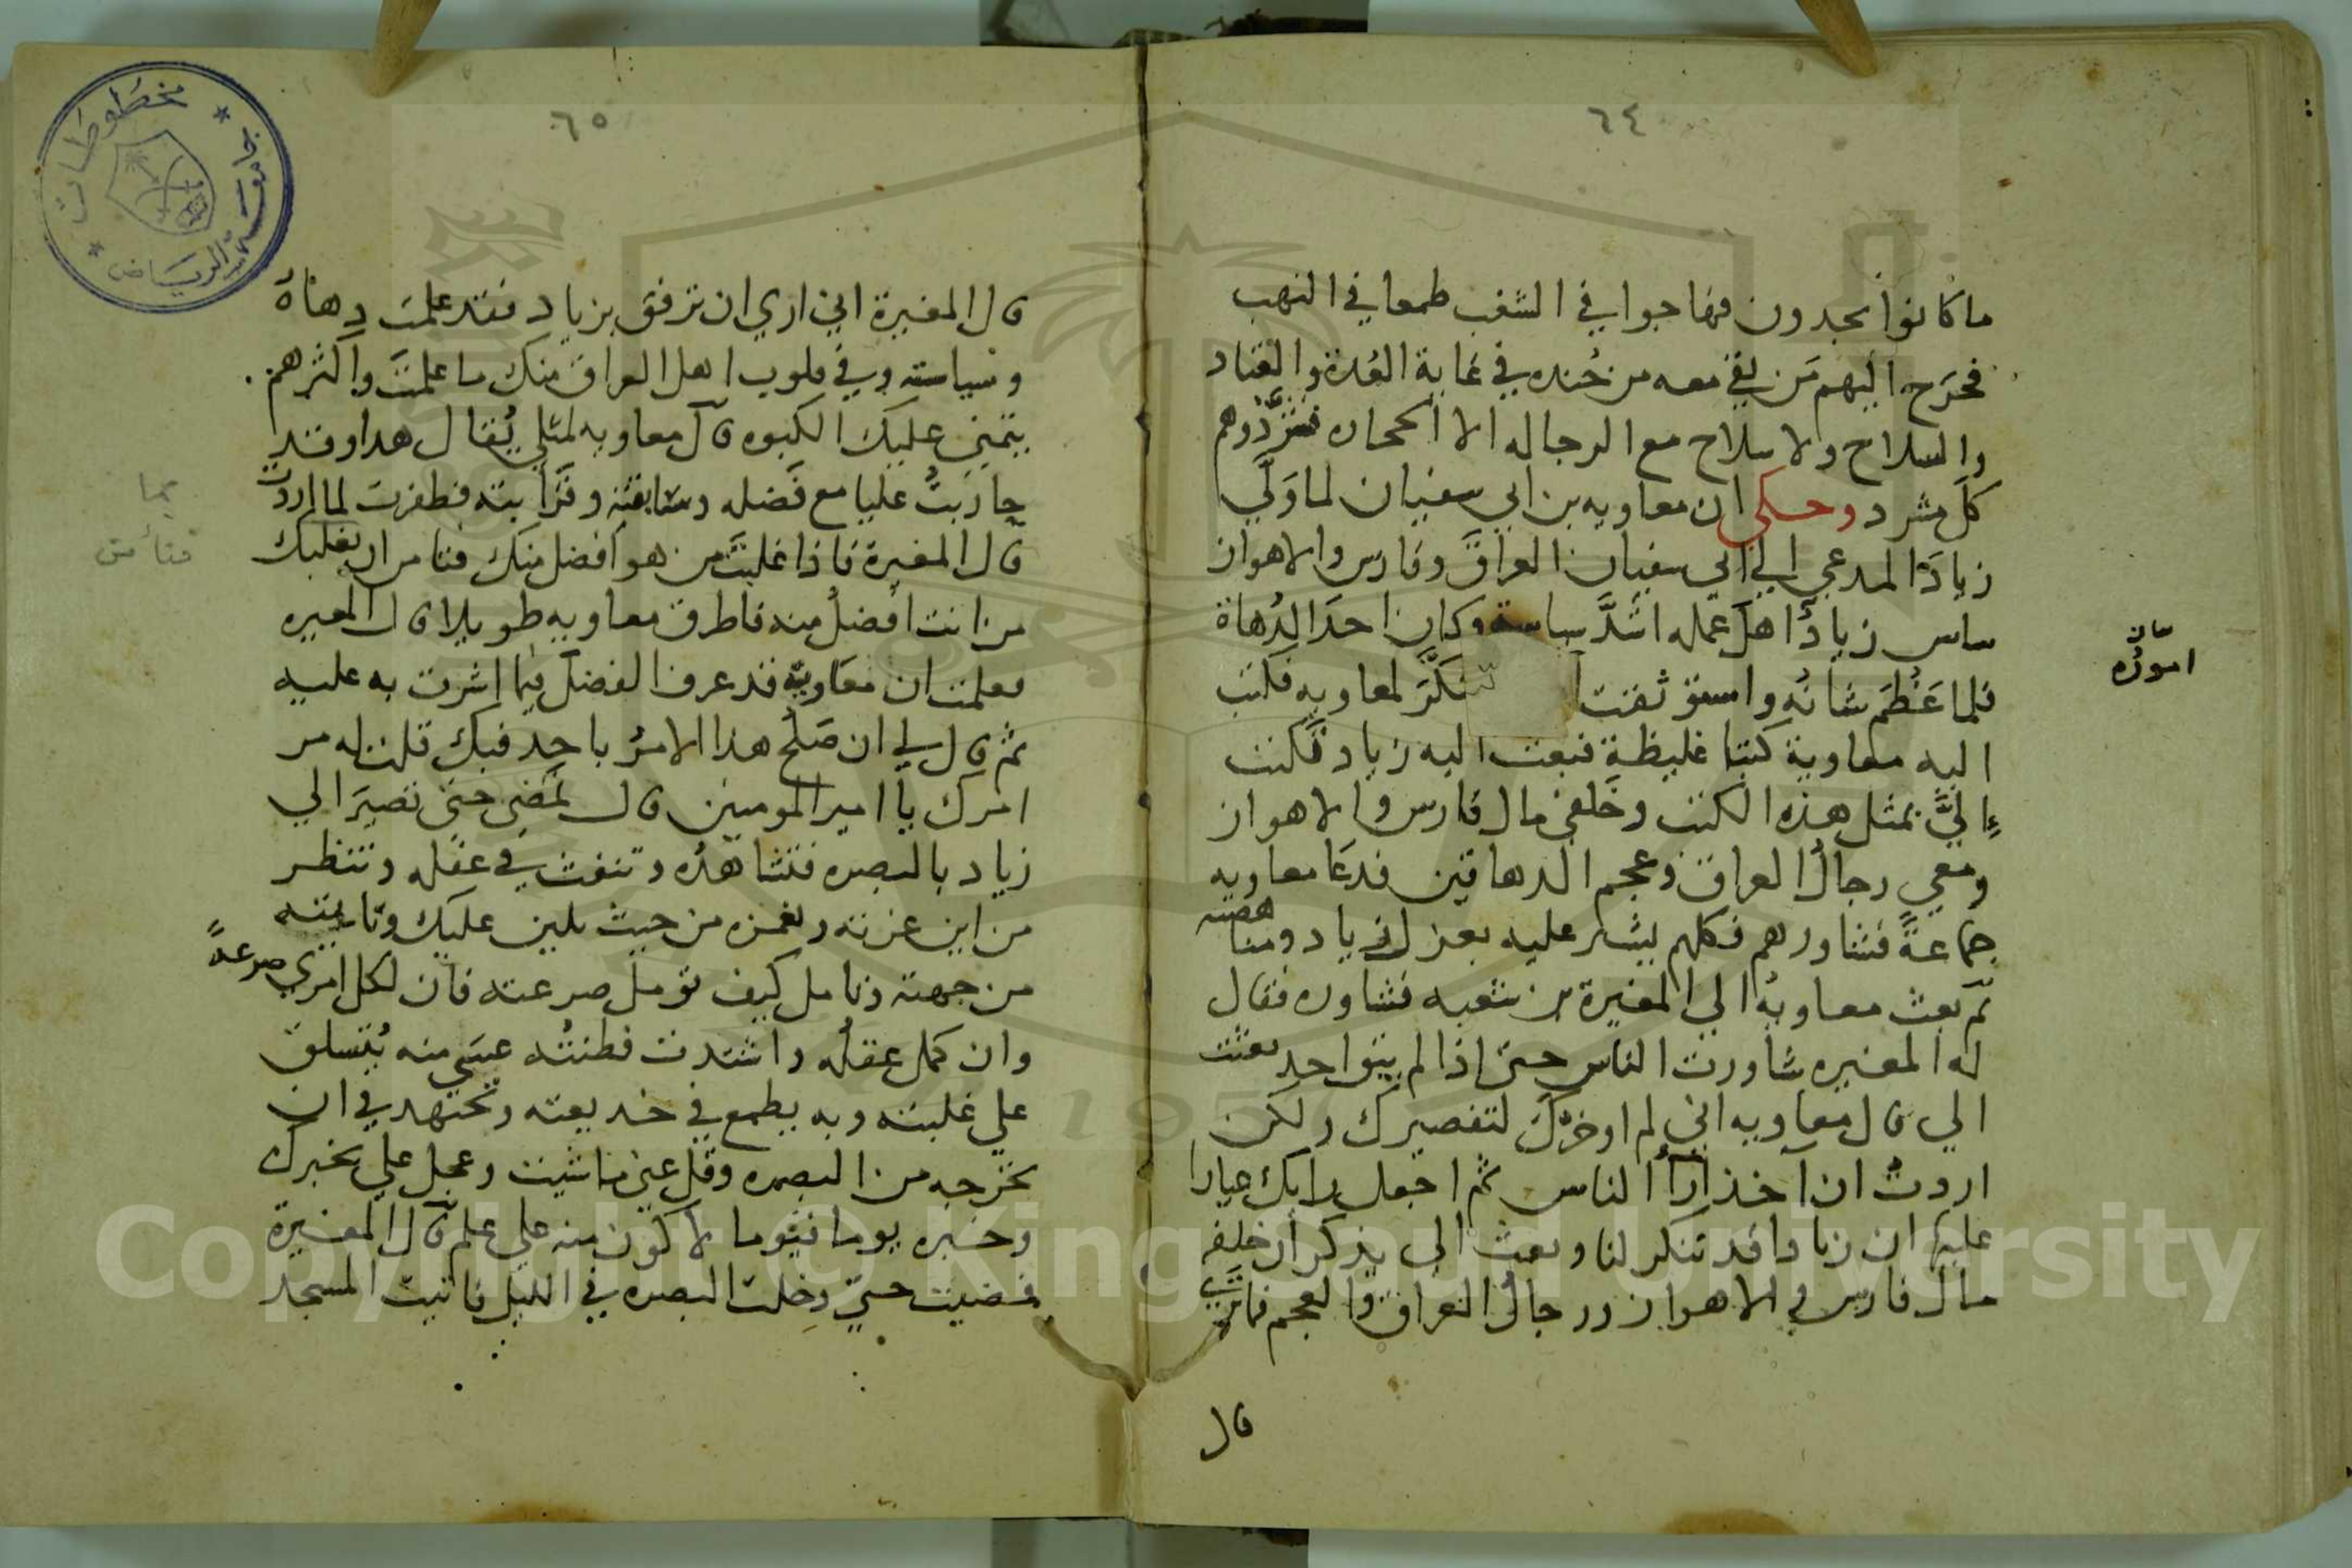 ٦٤
ما كانوا يجدون فهاجوا في الشغب طمعا في النهب
فخرج اليهم من بقي معه من جنده في غاية العدة والعتاد
والسلاح ولا سلاح مع الرجاله الا الحجاره فشردوهم
كل مشرد وحكي ان معاويه بن ابي سفيان لما ولي
زيادا المدعي الي ابي سفيان العراق وفارس والاهواز
ساس زيادا اهل عمله اشد سياسة وكان احد الدهاة
فلما عظم شانه واستوثقت تنكر لمعاويه فكتب
اموره
اليه معاوية كتبا غليظة فبعث اليه زياد تكتب
الي بمثل هذه الكتب وخلفي مال فارس والاهواز
ومعي رجال العراق وعجم الدهاقين فدعا معاويه
جماعة فشاورهم فكلهم يشير عليه بعزل زياد ومناهضته
ثم بعث معاوية الي المغيرة بن شعبه فشاوره فقال
له المغيره شاورت الناس حتى اذا لم يبق احد بعثت
الي قال معاويه اني لم اوخرك لتقصيرك ولكن
اردت ان آخذ آرآ الناس ثم اجعل رايك عيارا
عليها ان زيادا قد تنكر لنا وبعث الي يذكر ان خلفه
مال فارس والاهواز ورجال العراق والعجم فما تري
قال
٦٥
قال المغيرة اني اري ان ترفق بزياد فقد علمت دهاة
وسياسته وفي قلوب اهل العراق منك ما علمت واكثرهم
يتمني عليك الكبوه قال معاويه لمثلي يقال هدا وقد
جاذبت عليا مع فضله وسابقته وقرابته فظفرت لما اردت
بما
قال المغيرة فاذا غلبت من هو افضل منك فتامن ان يغلبك
فتأمن
من انت افضل منه فاطرق معاويه طويلا قال المغيره
فعلمت ان معاوية قد عرف الفضل فيما اشرت به عليه
ثم قال لي ان صلح هدا الامر باحد فبك قلت له مر
امرك يا امير المومنين قال تمضي حتى تصير الي
زياد بالبصره فتشاهده وتنفث في عقله وتنظر
من اين عزته وتغمزه من حيث يلين عليك وتاتيته
من جهته وتامل كيف تومل صرعته فان لكل امري صرعة
وان كمل عقله واشتدت فطنته عسي منه يتسلق
علي غلبته وبه يطمع في خديعته وتجتهد في ان
تخرجه من البصره وقل عني ما شيت وعجل علي بخبرك
وخبره يوما فيوما لاكون منه علي علم قال المغيرة
فمضيت حتي دخلت البصره في الليل فاتيت المسجد
مخطوطات
جامعة الرياض
Copyright © King Saud University
1957